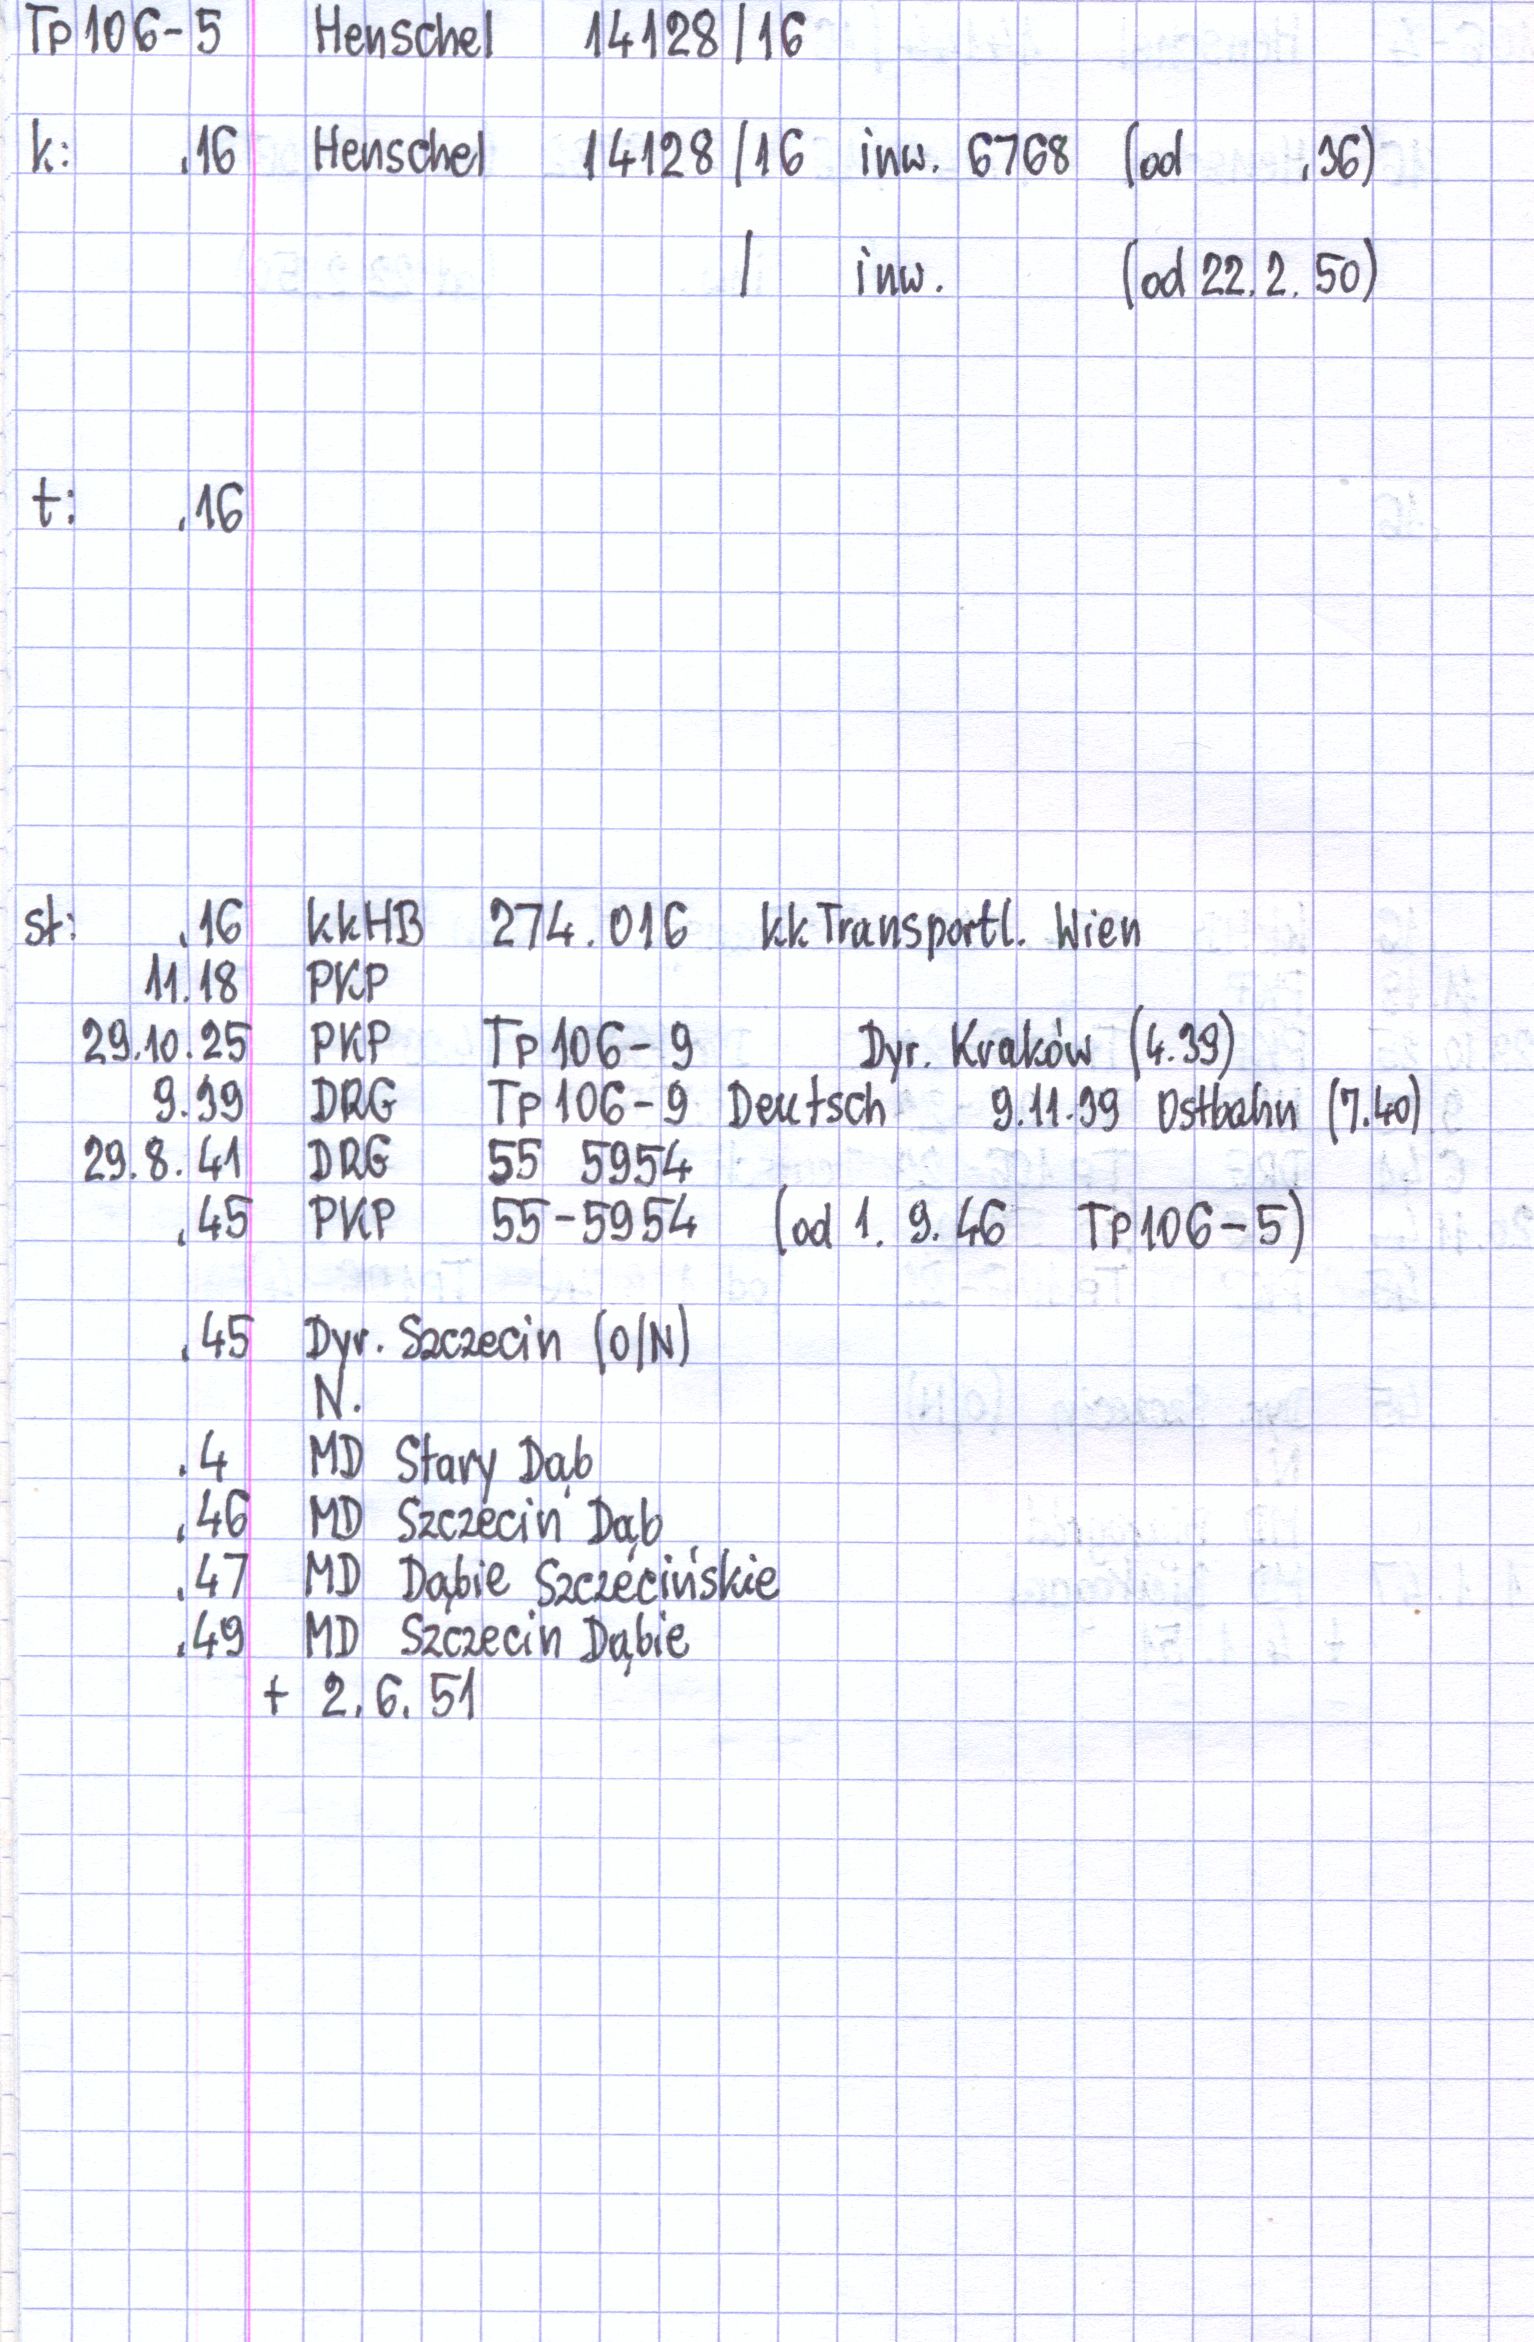 Tp 106-5 Henschel 14128/16
k: .16 Henschel 14128/16 inw. 6768 (od .36)
/ inw. (od 22.2.50)
t: .16
st: .16 kkHB 274.016 kk Transportl. Wien
11.18 PKP
29.10.25 PKP Tp 106-9 Dyr. Kraków (4.39)
9.39 DRG Tp 106-9 Deutsch 9.11.39 Ostbahn (7.40)
29.8.41 DRG 55 5954
.45 PKP 55-5954 (od 1.9.46 Tp 106-5)
.45 Dyr. Szczecin (O/N)
N.
.4 MD Stary Dąb
.46 MD Szczecin Dąb
.47 MD Dąbie Szczecińskie
.49 MD Szczecin Dąbie
+ 2.6.51